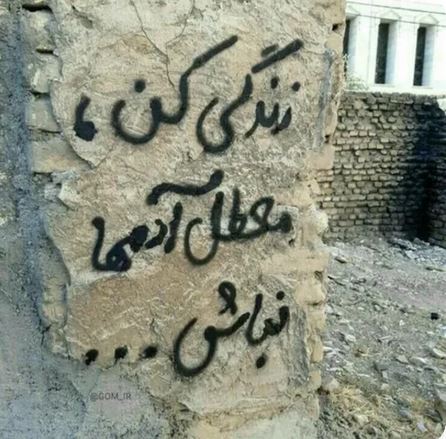 زندگی کن ،
معطل آدمها
نباش ...
@GOM_IR